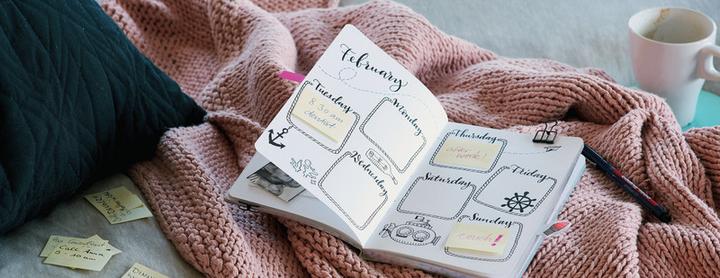 February
Tuesday
8.30 am
dentist
Monday
Wednesday
Thursday
after
work!
Friday
Saturday
Sunday
Call
Anna